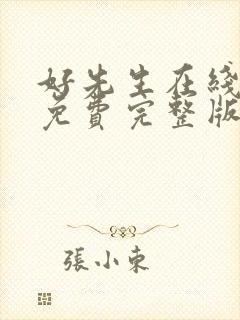 好先生在綫
免費完整版
張小東